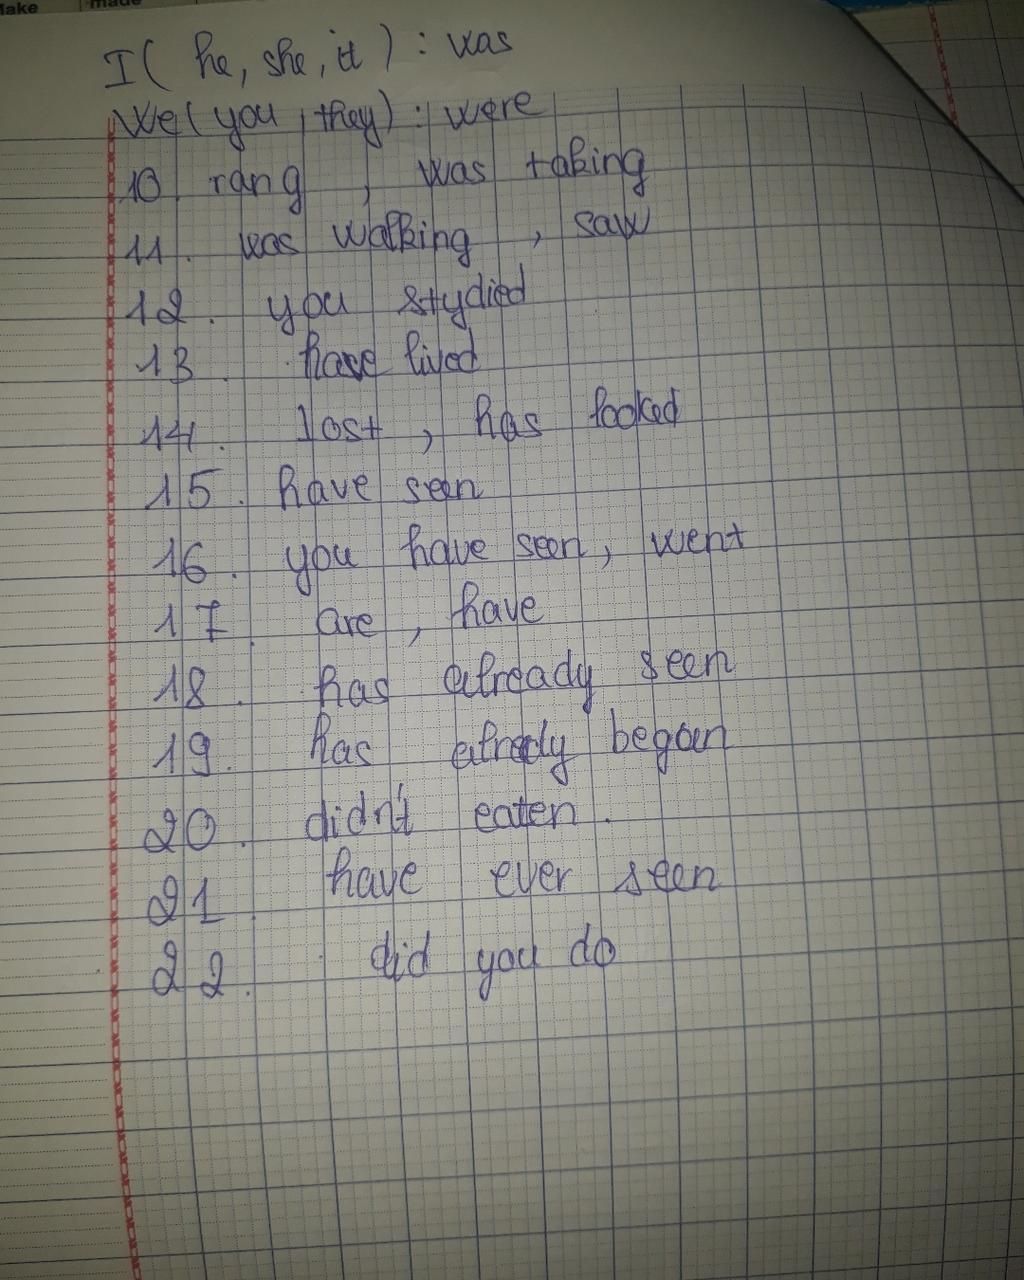 Make made
I ( he, she, it ) : was
We ( you , they ) : were
10. rang , was taking
11. was walking , saw
12. you stydied
13. have lived
14. lost , has looked
15. have seen
16. you have seen, went
17. are , have
18. has already seen
19. has already began
20. didn't eaten.
21. have ever seen
22. did you do